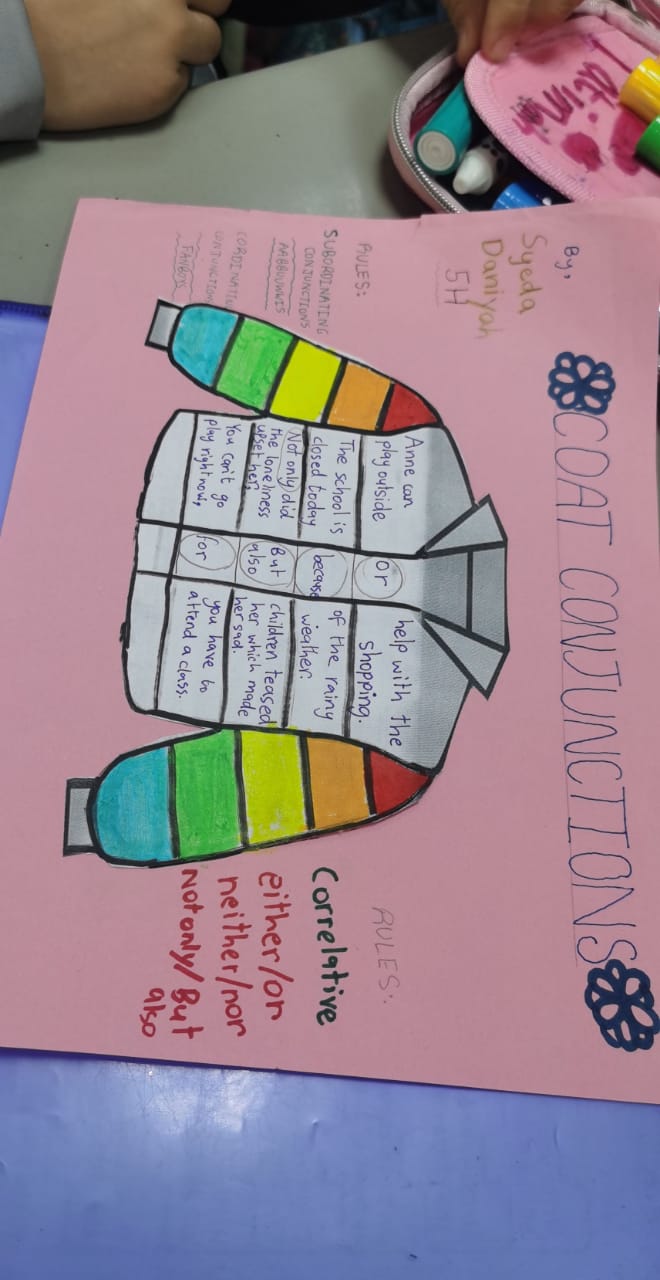 By,
Syeda
Daniyah
5H
COAT CONJUNCTIONS
RULES:
SUBORDINATING
CONJUNCTIONS
AABBUUWWIS
CORDINATING
CONJUNCTIONS
FANBOYS
Anne can
play outside
or
help with the
shopping.
The school is
closed today
because
of the rainy
weather.
Not only did
the loneliness
upset her,
But
also
children teased
her which made
her sad.
You can't go
play right now,
for
you have to
attend a class.
RULES:
Correlative
either/or
neither/nor
Not only/But
also